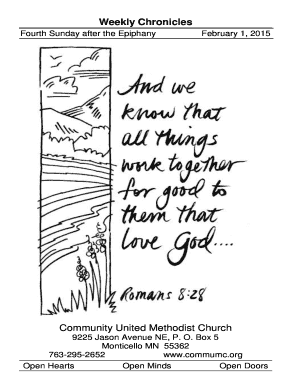 Weekly Chronicles
Fourth Sunday after the Epiphany February 1, 2015
And we
know that
all things
work together
for good to
them that
love God....
Romans 8:28
Community United Methodist Church
9225 Jason Avenue NE, P. O. Box 5
Monticello MN 55362
763-295-2652 www.commumc.org
Open Hearts Open Minds Open Doors